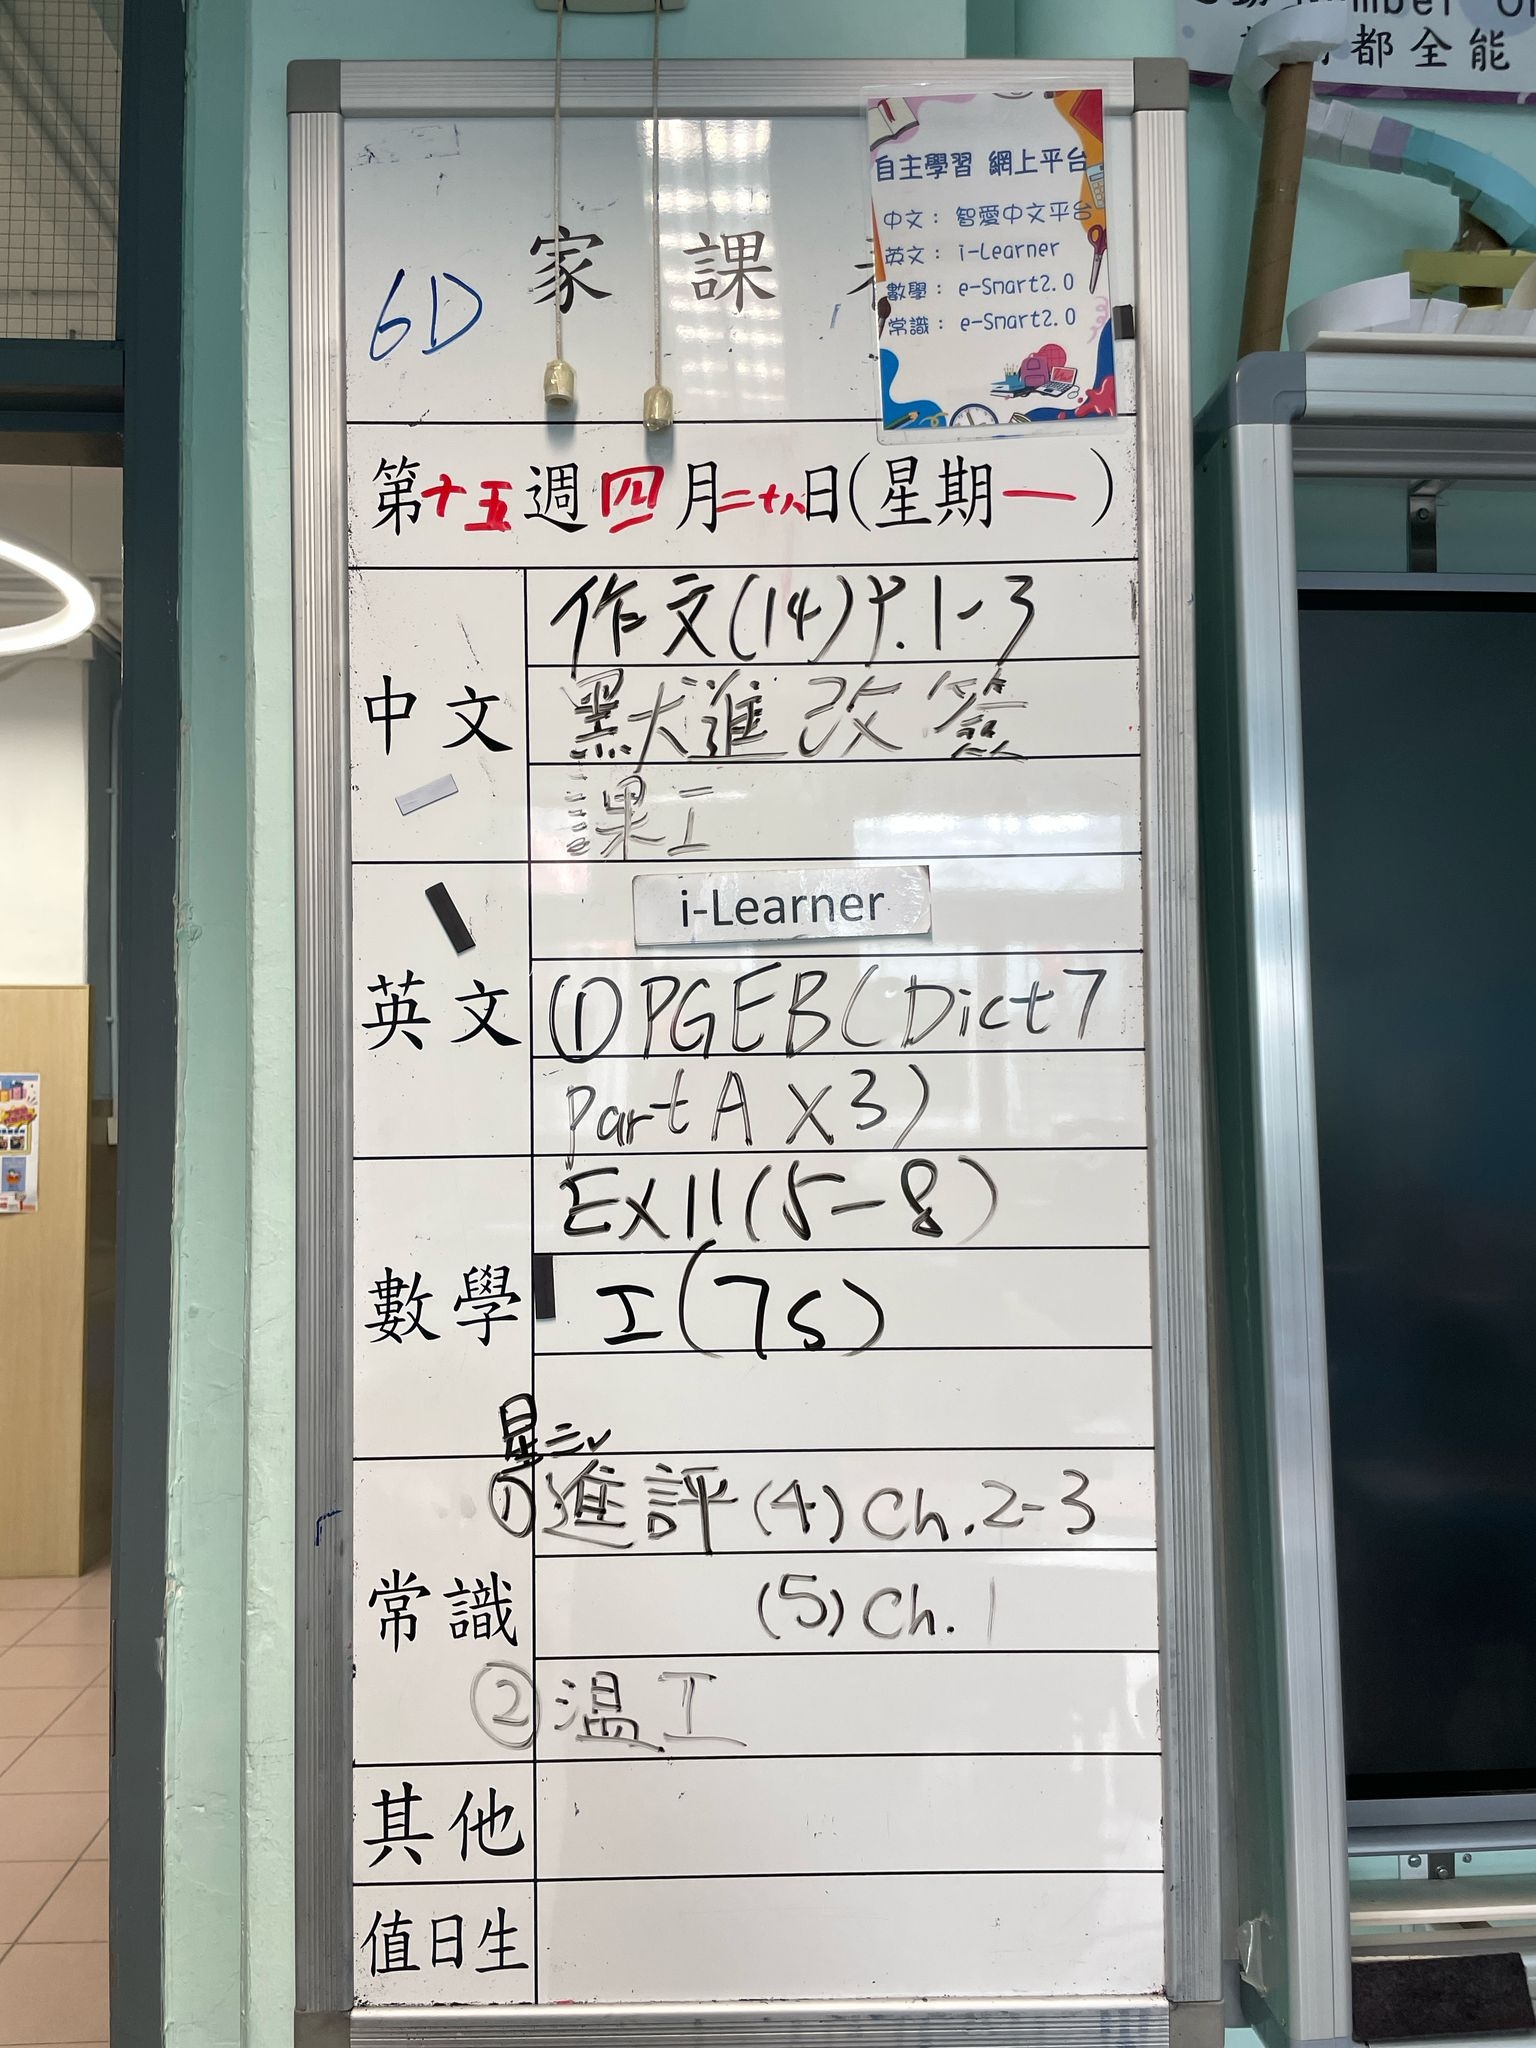 mber On
都全能
自主學習 網上平台
中文： 智愛中文平台
英文： i-Learner
數學： e-Smart2.0
常識： e-Smart2.0
家課
6D
第十五週四月二十八日(星期一)
中文
作文(14)P.1-3
默進改簽
課工
英文
i-Learner
①PGEB(Dict7
Part A X3)
數學
Ex11(5-8)
工(75)
星三
常識
①進評(4)Ch.2-3
(5)Ch.1
②溫工
其他
值日生